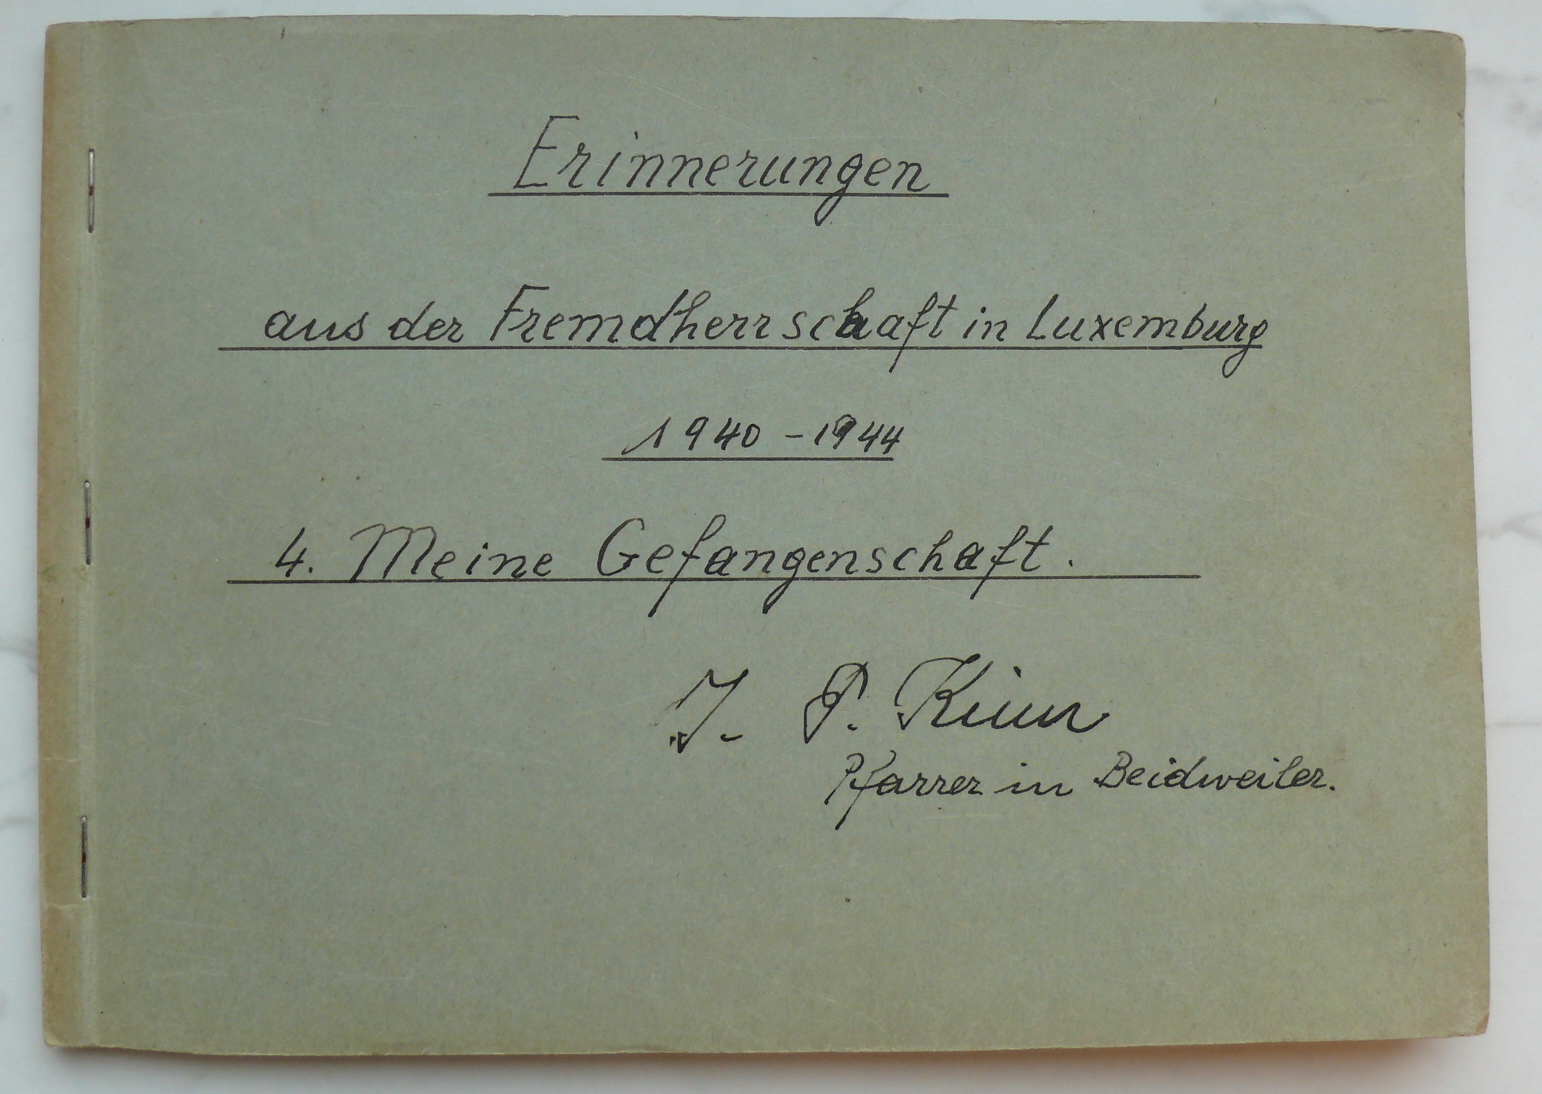 Erinnerungen
aus der Fremdherrschaft in Luxemburg
1940 - 1944
4. Meine Gefangenschaft.
J. P. 
Pfarrer in Beidweiler.